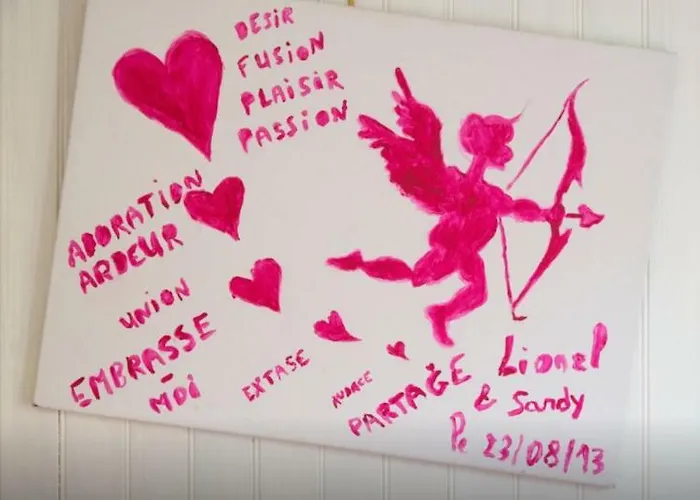 DESIR
FUSION
PLAISIR
PASSION
ADORATION
ARDEUR
UNION
EMBRASSE
- MOI
EXTASE
AUDACE
PARTAGE
Lionel
& Sandy
le 23/08/13